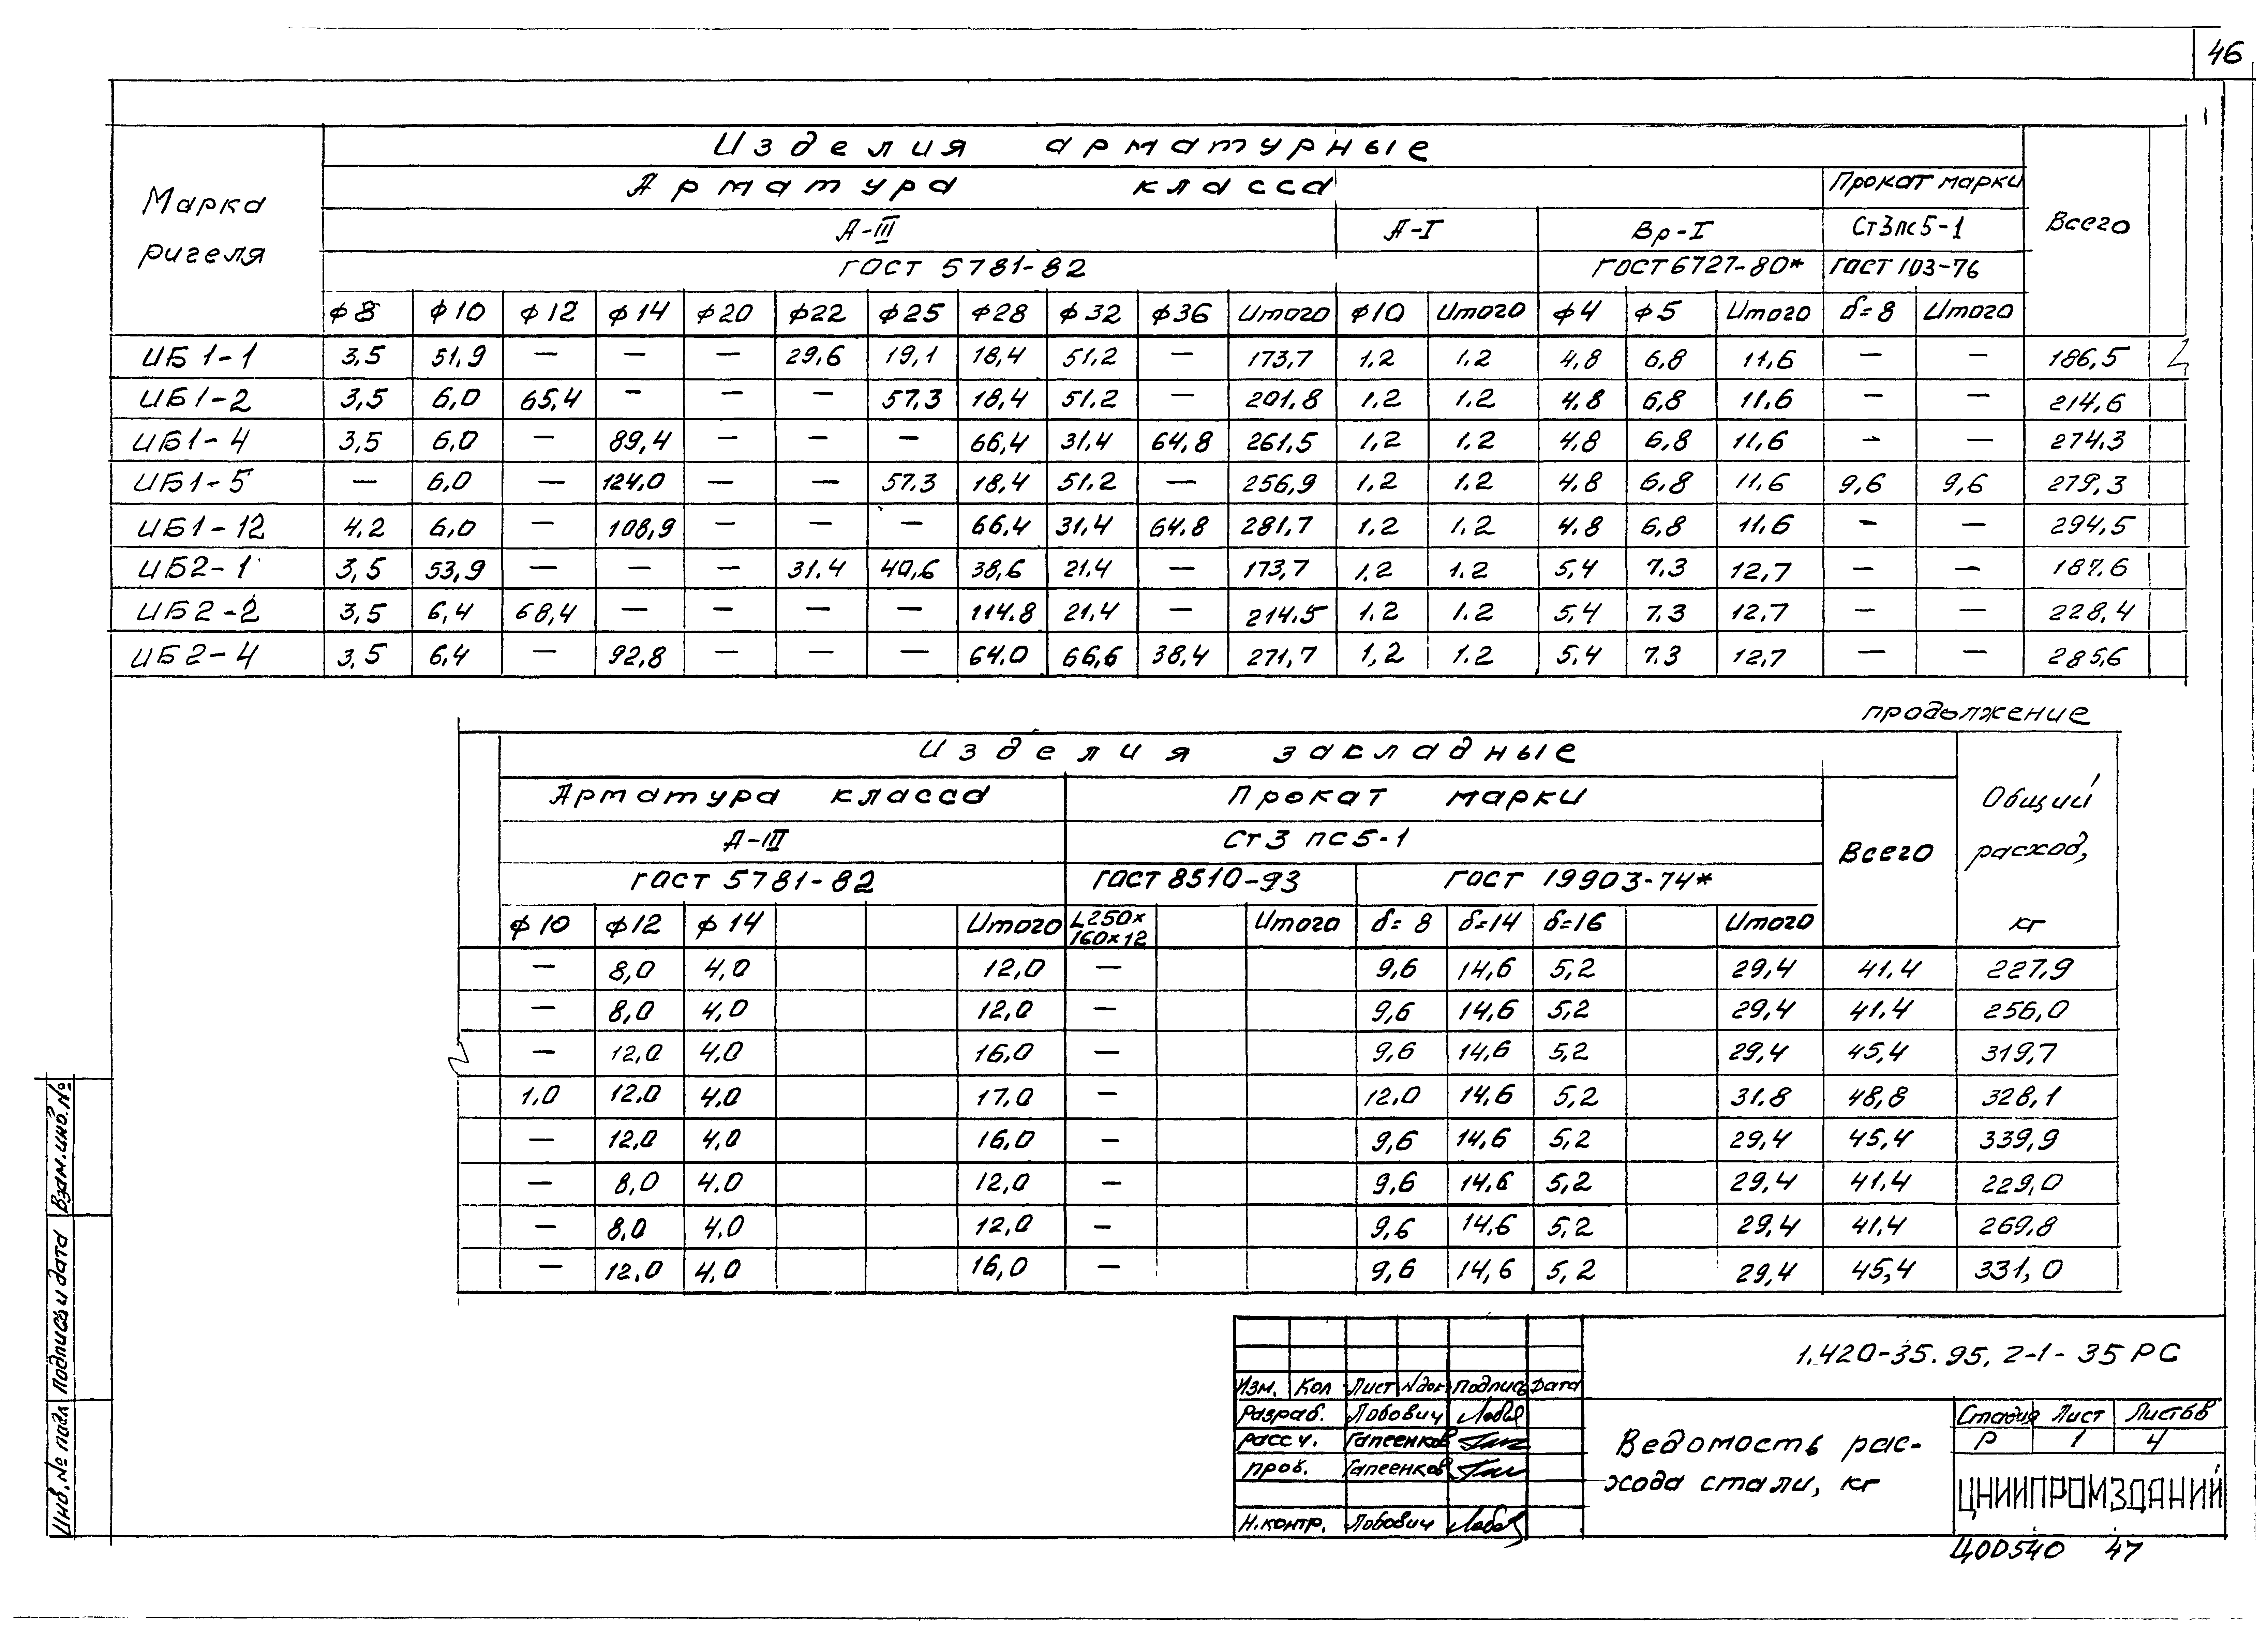 46
Изделия арматурные
Марка ригеля
Арматура класса
Прокат марки
Всего
А-III
А-I
Вр-I
Ст3пс5-1
ГОСТ 5781-82
ГОСТ 6727-80*
ГОСТ 103-76
ф8 ф10 ф12 ф14 ф20 ф22 ф25 ф28 ф32 ф36 Итого ф10 Итого ф4 ф5 Итого δ=8 Итого
ИБ1-1 3,5 51,9 — — — 29,6 19,1 18,4 51,2 — 173,7 1,2 1.2 4,8 6,8 11,6 — — 186,5
ИБ1-2 3,5 6,0 65,4 — — — 57.3 18,4 51.2 — 201.8 1.2 1.2 4.8 6,8 11.6 — — 214,6
ИБ1-4 3,5 6,0 — 89,4 — — — 66,4 31,4 64,8 261,5 1,2 1.2 4,8 6,8 11,6 — — 274,3
ИБ1-5 — 6,0 — 124,0 — — 57.3 18,4 51.2 — 256,9 1,2 1.2 4.8 6,8 11.6 9,6 9,6 279,3
ИБ1-12 4,2 6,0 — 108,9 — — — 66,4 31,4 64.8 281,7 1.2 1.2 4.8 6,8 11.6 — — 294,5
ИБ2-1 3,5 53,9 — — — 31.4 40,6 38,6 21.4 — 173,7 1.2 1.2 5,4 7.3 12,7 — — 187.6
ИБ2-2 3,5 6,4 68,4 — — — — 114.8 21,4 — 214.5 1.2 1.2 5,4 7.3 12,7 — — 228,4
ИБ2-4 3,5 6,4 — 92,8 — — — 64.0 66,6 38,4 271,7 1,2 1.2 5,4 7.3 12,7 — — 285,6
продолжение
Изделия закладные
Арматура класса
Прокат марки
Всего
Общий расход, кг
А-III
Ст3 пс5-1
ГОСТ 5781-82
ГОСТ 8510-93
ГОСТ 19903-74*
ф10 ф12 ф14 Итого L250×160×12 Итого δ=8 δ=14 δ=16 Итого
— 8,0 4,0 12,0 — 9,6 14,6 5,2 29,4 41.4 227,9
— 8,0 4,0 12,0 — 9,6 14,6 5,2 29,4 41.4 256,0
— 12,0 4.0 16,0 — 9,6 14,6 5,2 29,4 45,4 319,7
1,0 12,0 4,0 17,0 — 12,0 14,6 5,2 31.8 48,8 328,1
— 12,0 4,0 16,0 — 9,6 14,6 5,2 29,4 45,4 339,9
— 8,0 4.0 12,0 — 9,6 14.6 5,2 29,4 41.4 229,0
— 8,0 4,0 12,0 — 9,6 14,6 5,2 29,4 41.4 269,8
— 12,0 4,0 16,0 — 9,6 14,6 5,2 29,4 45,4 331,0
Взам.инв.№
Подпись и дата
Инв.№ подл
1.420-35.95. 2-1-35 РС
Изм. Кол Лист №док. Подпись Дата
Разраб. Лобович
Рассч. Гапеенков
Пров. Гапеенков
Н.контр. Лобович
Ведомость рас-
хода стали, кг
Стадия Лист Листов
Р 1 4
ЦНИИПРОМЗДАНИЙ
Ц00540 47